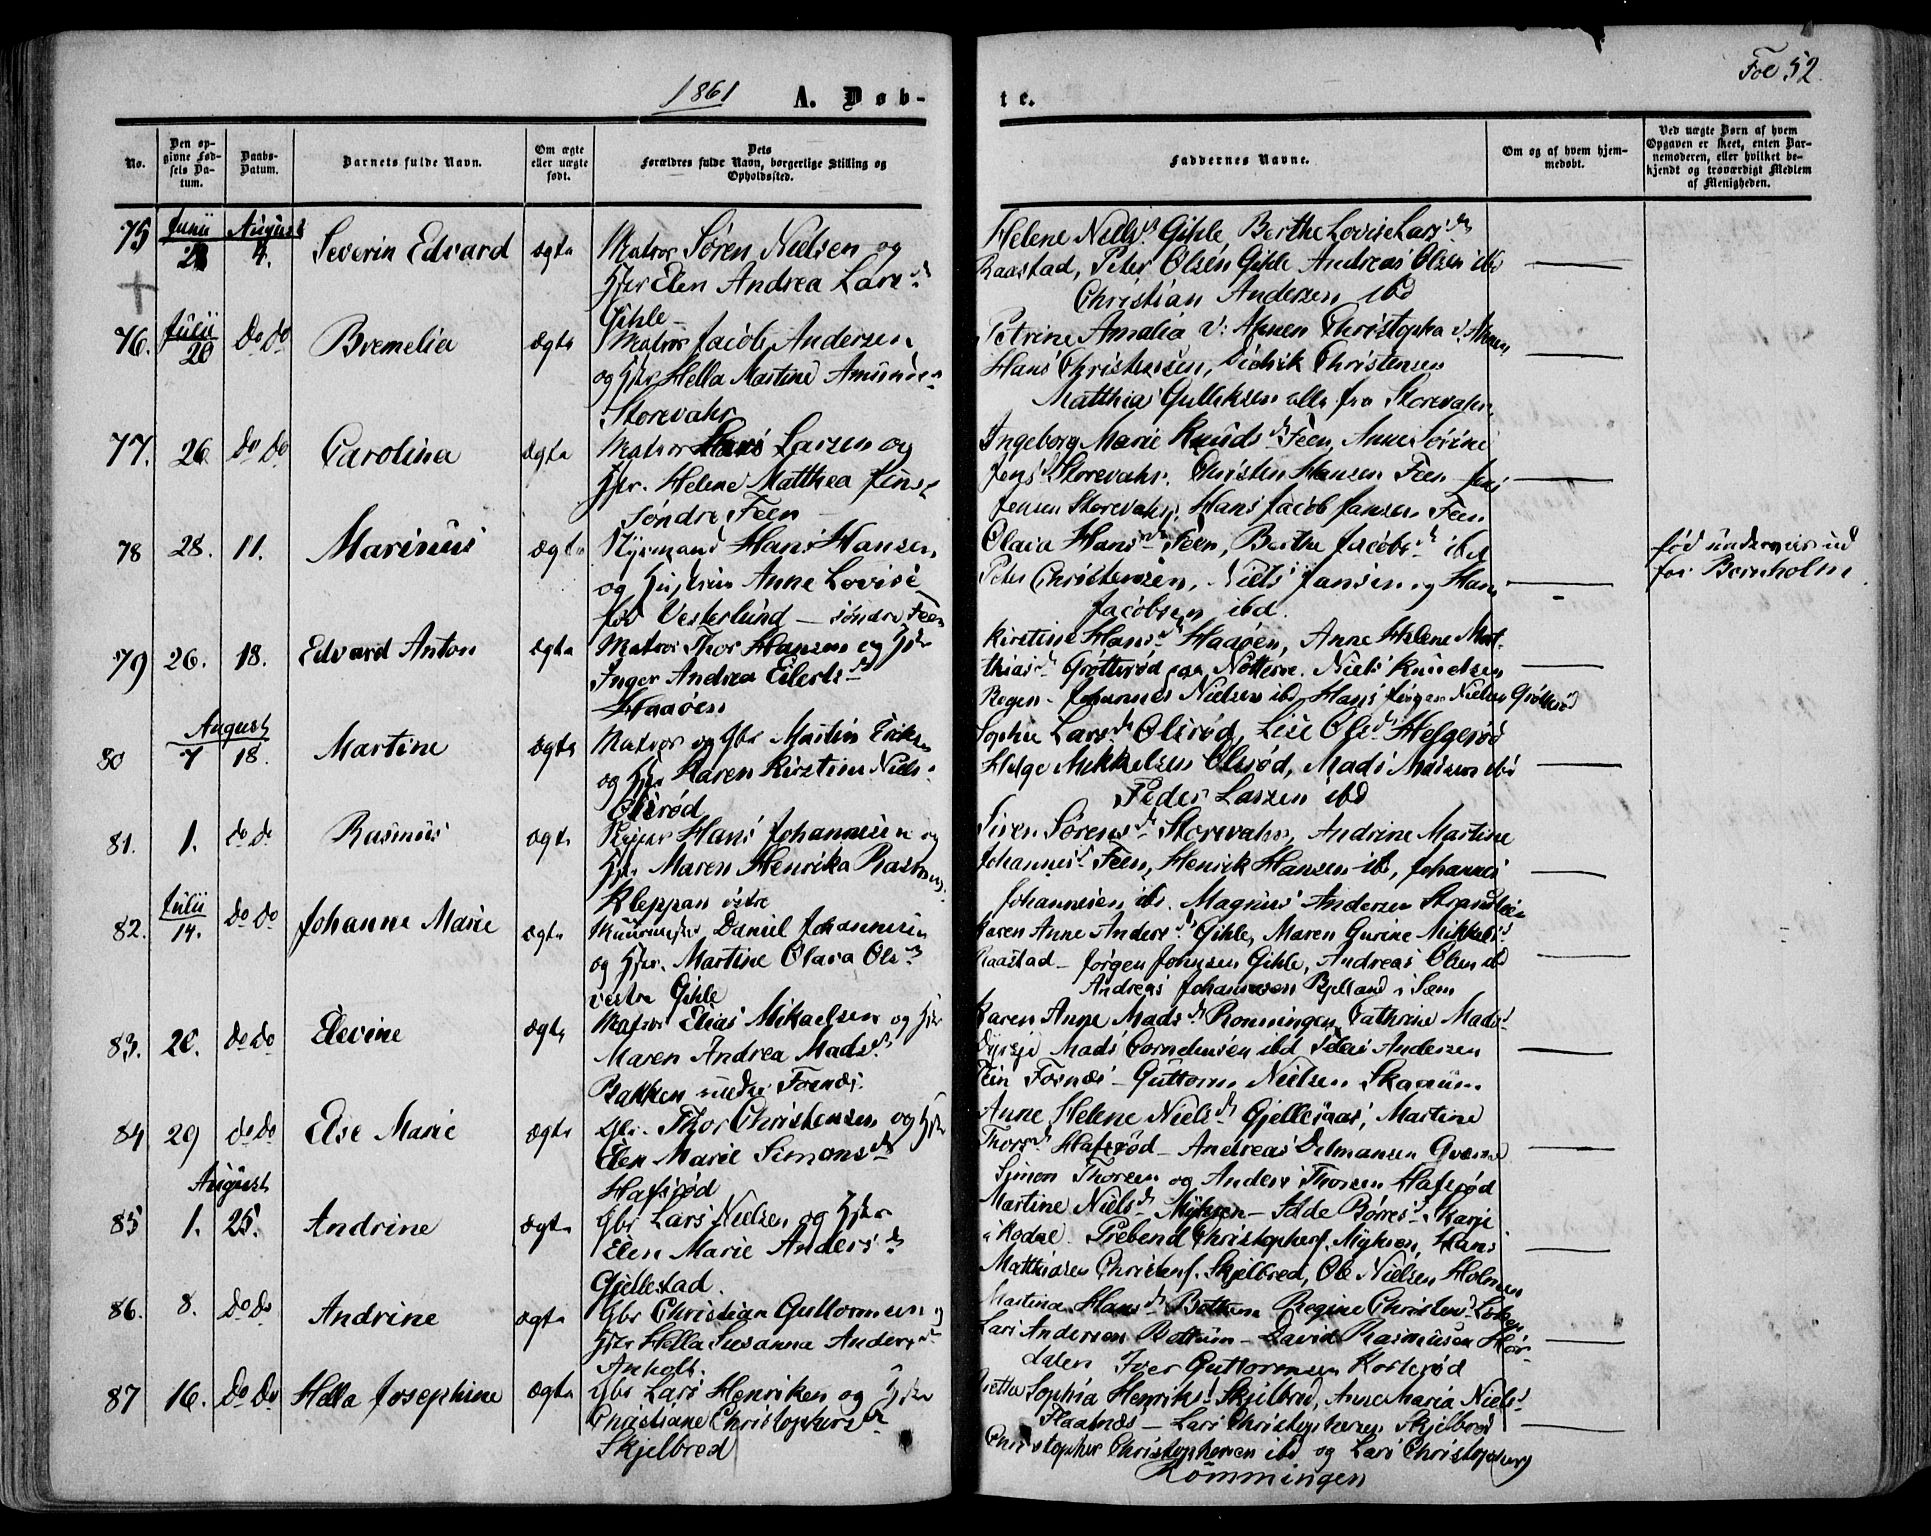 1861 A. Døb-
te.
Fol 52.
No.
Den op-
givne Fød-
sels Da-
tum.
Daabs-
Datum.
Barnets fulde Navn.
Om ægte
eller uægte
født.
Dets
Forældres fulde Navn, borgerlige Stilling og
Opholdssted.
Faddernes Navne.
Om og af hvem hjem-
medøbt.
Ved uægte Børn af hvem
Opgaven er skeet, enten Bar-
nemoderen, eller hvilket be-
kjendt og troværdigt Medlem
af Menigheden.
75 Junii August
4. Severin Edvard ægte Matros Søren Nielsen og
Hstr Elen Andrea Lars d.
Gihle
Helene Niels d. Gihle Berthe Lovise Lars d.
Raastad, Peter Olsen Gihle Andreas Olsen ibd
Christian Andersen ibd
76. Julii
20 Do Do Bremelia ægte Matros Jacob Andersen
og Hstr Hella Martine Amunds
Storevahr
Petrine Amalia Christopha
Hans Christensen, Didrik Christensen
Matthia Gulliksen alle fra Storevahr.
77. 26 Do Do Carolina ægte Matros Hans Larsen og
Hstr. Helene Matthea Jens
Søndre Feen
Ingeborg Marie Knuds d. Feen Anne Sørine
Jens d. Storevahr. Christen Hansen Feen Jens
Jensen Storevahr, Hans Jacob Jansen Feen
78 28. 11. Marinus ægte Styrmand Hans Hansen
og Hustru Anne Lovise
fød Vesterlund — søndre Feen
Olava Hans d. Feen, Berthe Jacobs d. ibd
Peter Christensen, Niels Jansen og Hans
Jacobsen ibd.
fød underveis ud
for Bornholm
79 26. 18. Edvard Anton ægte Matros Thor Hansen og Hstr
Inger Andrea Eilerts d.
Haaøen
Kirstine Hans d. Haaøen, Anne Helene Mat-
thias d. Grøtterød paa Nøtterø. Niels Knudsen
Bogen - Johannes Nielsen ibd, Hans Jørgen Nielsen Grøtterød
80 August
7 18. Martine ægte Matros og Gbr Martin Eriksen
og Hstr Karen Kirstine Niels
Olsrød
Sophie Lars d. Olsrød, Lise Ols d. Helgerød
Helge Mikkelsen Olsrød, Mads Madsen ibd
Peder Larsen ibd
81. 1. do do Rasmus ægte Skipper Hans Johannesen og
Hstr Maren Henrika Rasmus
Kleppan østre
Siren Sørens d. Storevahr, Andrine Martine
Johannes d. Feen, Henrik Hansen ibd, Johannes
Johannesen ibd. Magnus Andersen
82. Julii
14. Do Do Johanne Marie ægte Muurmester Daniel Johannesen
og Hstr. Martine Olava Ols d.
vestre Gihle
Karen Anne Anders d. Gihle, Maren Gurine Mikkels d.
Raastad — Jørgen Johnsen Gihle, Andreas Olsen ibd
Andreas Johannesen Bjelland i Sæm
83. 20. Do Do Elevine ægte Matros Elias Mikaelsen og Hstr
Maren Andrea Mads d.
Bakken under Foenæs.
Karen Anne Mads d. Rønningen, Cathrine Mads d.
Mads Corneliusen ibd Peder Andersen
Foenæs — Guttorm Nielsen Skaaum
84 29 do do Else Marie ægte Gbr. Thor Christensen og Hstr
Elen Marie Simons d.
Hafsrød
Anne Helene Niels d. Gjellesaas, Martine
Thors d. Hafsrød — Andreas Kværne
Simon Thorsen og Anders Thorsen Hafsrød
85 August
1. 25. Andrine ægte Gbr Lars Nielsen og Hstr
Elen Marie Anders d.
Gjellestad.
Martine Niels d. Myhren — Børres d. Skarje
i Kodal. Prebend Christophers. Myhren, Hans
Matthiasen Christens. Skjelbred, Ole Nielsen Holmen
86. 8. Do Do Andrine ægte Gbr Christian Guttormsen og
Hstr Hella Susanna Anders d.
Anholt.
Martina Hans d. Bottum Regine Christens d.
Lars Andersen Bottum — David Rasmusen Hør-
dalen Iver Guttormsen Korterød
87 16. Do Do Hella Josephine ægte Gbr Lars Henriksen og Hstr
Christiane Christophers d.
Skjelbred
Grethe Sophia Henriks d. Skjelbred, Anne Maria Niels d.
Flaatnæs — Lars Christophersen Skjelbred
Christopher Christophersen ibd og Lars Christophers.
Rømmingen